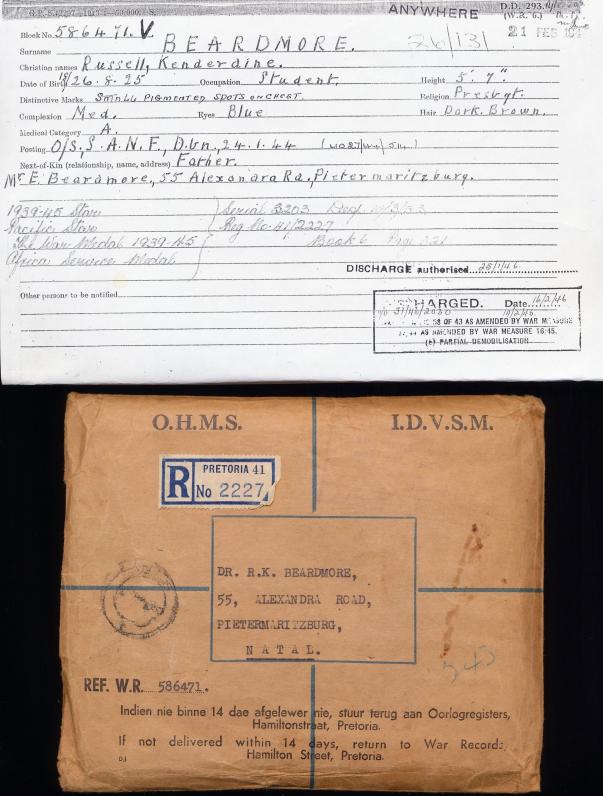 G.P.-S.
ANYWHERE
D.D. 293.
(W.R. 6.)
Block No. 586471.V
21 FEB
Surname BEARDMORE.
26/131
Christian names Russell, Kenderdine.
Date of Birth 26.8.25 Occupation Student. Height 5'. 7".
Distinctive Marks SMALL PIGMENTED SPOTS ON CHEST. Religion Presbyt.
Complexion Med. Eyes Blue Hair Dark. Brown.
Medical Category A.
Posting O/S, S.A.N.F., Dbn, 24.1.44
Next-of-Kin (relationship, name, address) Father.
Mr E. Beardmore, 55 Alexandra Rd, Pietermaritzburg.
1939-45 Star Serial 3203 Desp.
Pacific Star Reg No. 41/2227
The War Medal 1939-45 Book 6 Page 321
Africa Service Medal
DISCHARGE authorised 25/1/46
Other persons to be notified
DISCHARGED. Date 16/2/46
58 OF 43 AS AMENDED BY WAR MEASURE
AS AMENDED BY WAR MEASURE 16/45.
(b) PARTIAL DEMOBILISATION
O.H.M.S. I.D.V.S.M.
R PRETORIA 41
No 2227
DR. R.K. BEARDMORE,
55, ALEXANDRA ROAD,
PIETERMARITZBURG,
NATAL.
REF. W.R. 586471.
Indien nie binne 14 dae afgelewer nie, stuur terug aan Oorlogregisters,
Hamiltonstraat, Pretoria.
If not delivered within 14 days, return to War Records,
Hamilton Street, Pretoria.